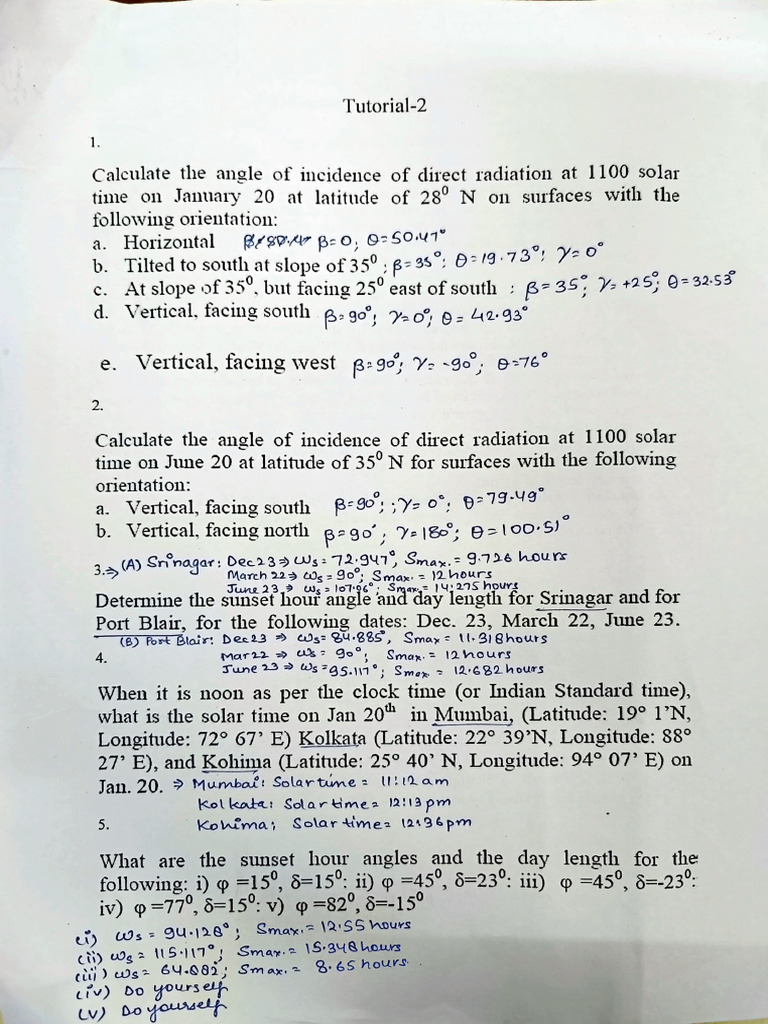 Tutorial-2
1.
Calculate the angle of incidence of direct radiation at 1100 solar
time on January 20 at latitude of 28⁰ N on surfaces with the
following orientation:
a. Horizontal β=0; θ=50.47°
b. Tilted to south at slope of 35⁰ : β=35°; θ=19.73°; γ=0°
c. At slope of 35⁰, but facing 25⁰ east of south : β=35°; γ=+25°; θ=32.53°
d. Vertical, facing south β=90°; γ=0°; θ=42.93°
e. Vertical, facing west β=90°; γ=-90°; θ=76°
2.
Calculate the angle of incidence of direct radiation at 1100 solar
time on June 20 at latitude of 35⁰ N for surfaces with the following
orientation:
a. Vertical, facing south β=90°; ;γ=0°; θ=79.49°
b. Vertical, facing north β=90°; γ=180°; θ=100.51°
3.→ (A) Srinagar: Dec23⇒ ωs=72.947°, Smax.=9.726 hours
March 22⇒ ωs=90°; Smax.=12hours
June 23⇒ ωs=107.06°; Smax.=14.275hours
Determine the sunset hour angle and day length for Srinagar and for
Port Blair, for the following dates: Dec. 23, March 22, June 23.
(B) Port Blair: Dec23 ⇒ ωs=84.885°, Smax=11.318hours
Mar22 ⇒ ωs=90°; Smax.=12hours
June 23⇒ ωs=95.117°; Smax=12.682hours
4.
When it is noon as per the clock time (or Indian Standard time),
what is the solar time on Jan 20th in Mumbai, (Latitude: 19° 1'N,
Longitude: 72° 67' E) Kolkata (Latitude: 22° 39'N, Longitude: 88°
27' E), and Kohima (Latitude: 25° 40' N, Longitude: 94° 07' E) on
Jan. 20. ⇒ Mumbai: Solar time = 11:12 am
Kolkata: Solar time= 12:13pm
Kohima; Solar time= 12:36pm
5.
What are the sunset hour angles and the day length for the
following: i) φ =15⁰, δ=15⁰: ii) φ =45⁰, δ=23⁰: iii) φ =45⁰, δ=-23⁰:
iv) φ=77⁰, δ=15⁰: v) φ=82⁰, δ=-15⁰
(i) ωs = 94.128°; Smax.=12.55hours
(ii) ωs = 115.117°; Smax.=15.348hours
(iii) ωs= 64.882; Smax.= 8.65 hours.
(iv) Do yourself
(v) Do yourself